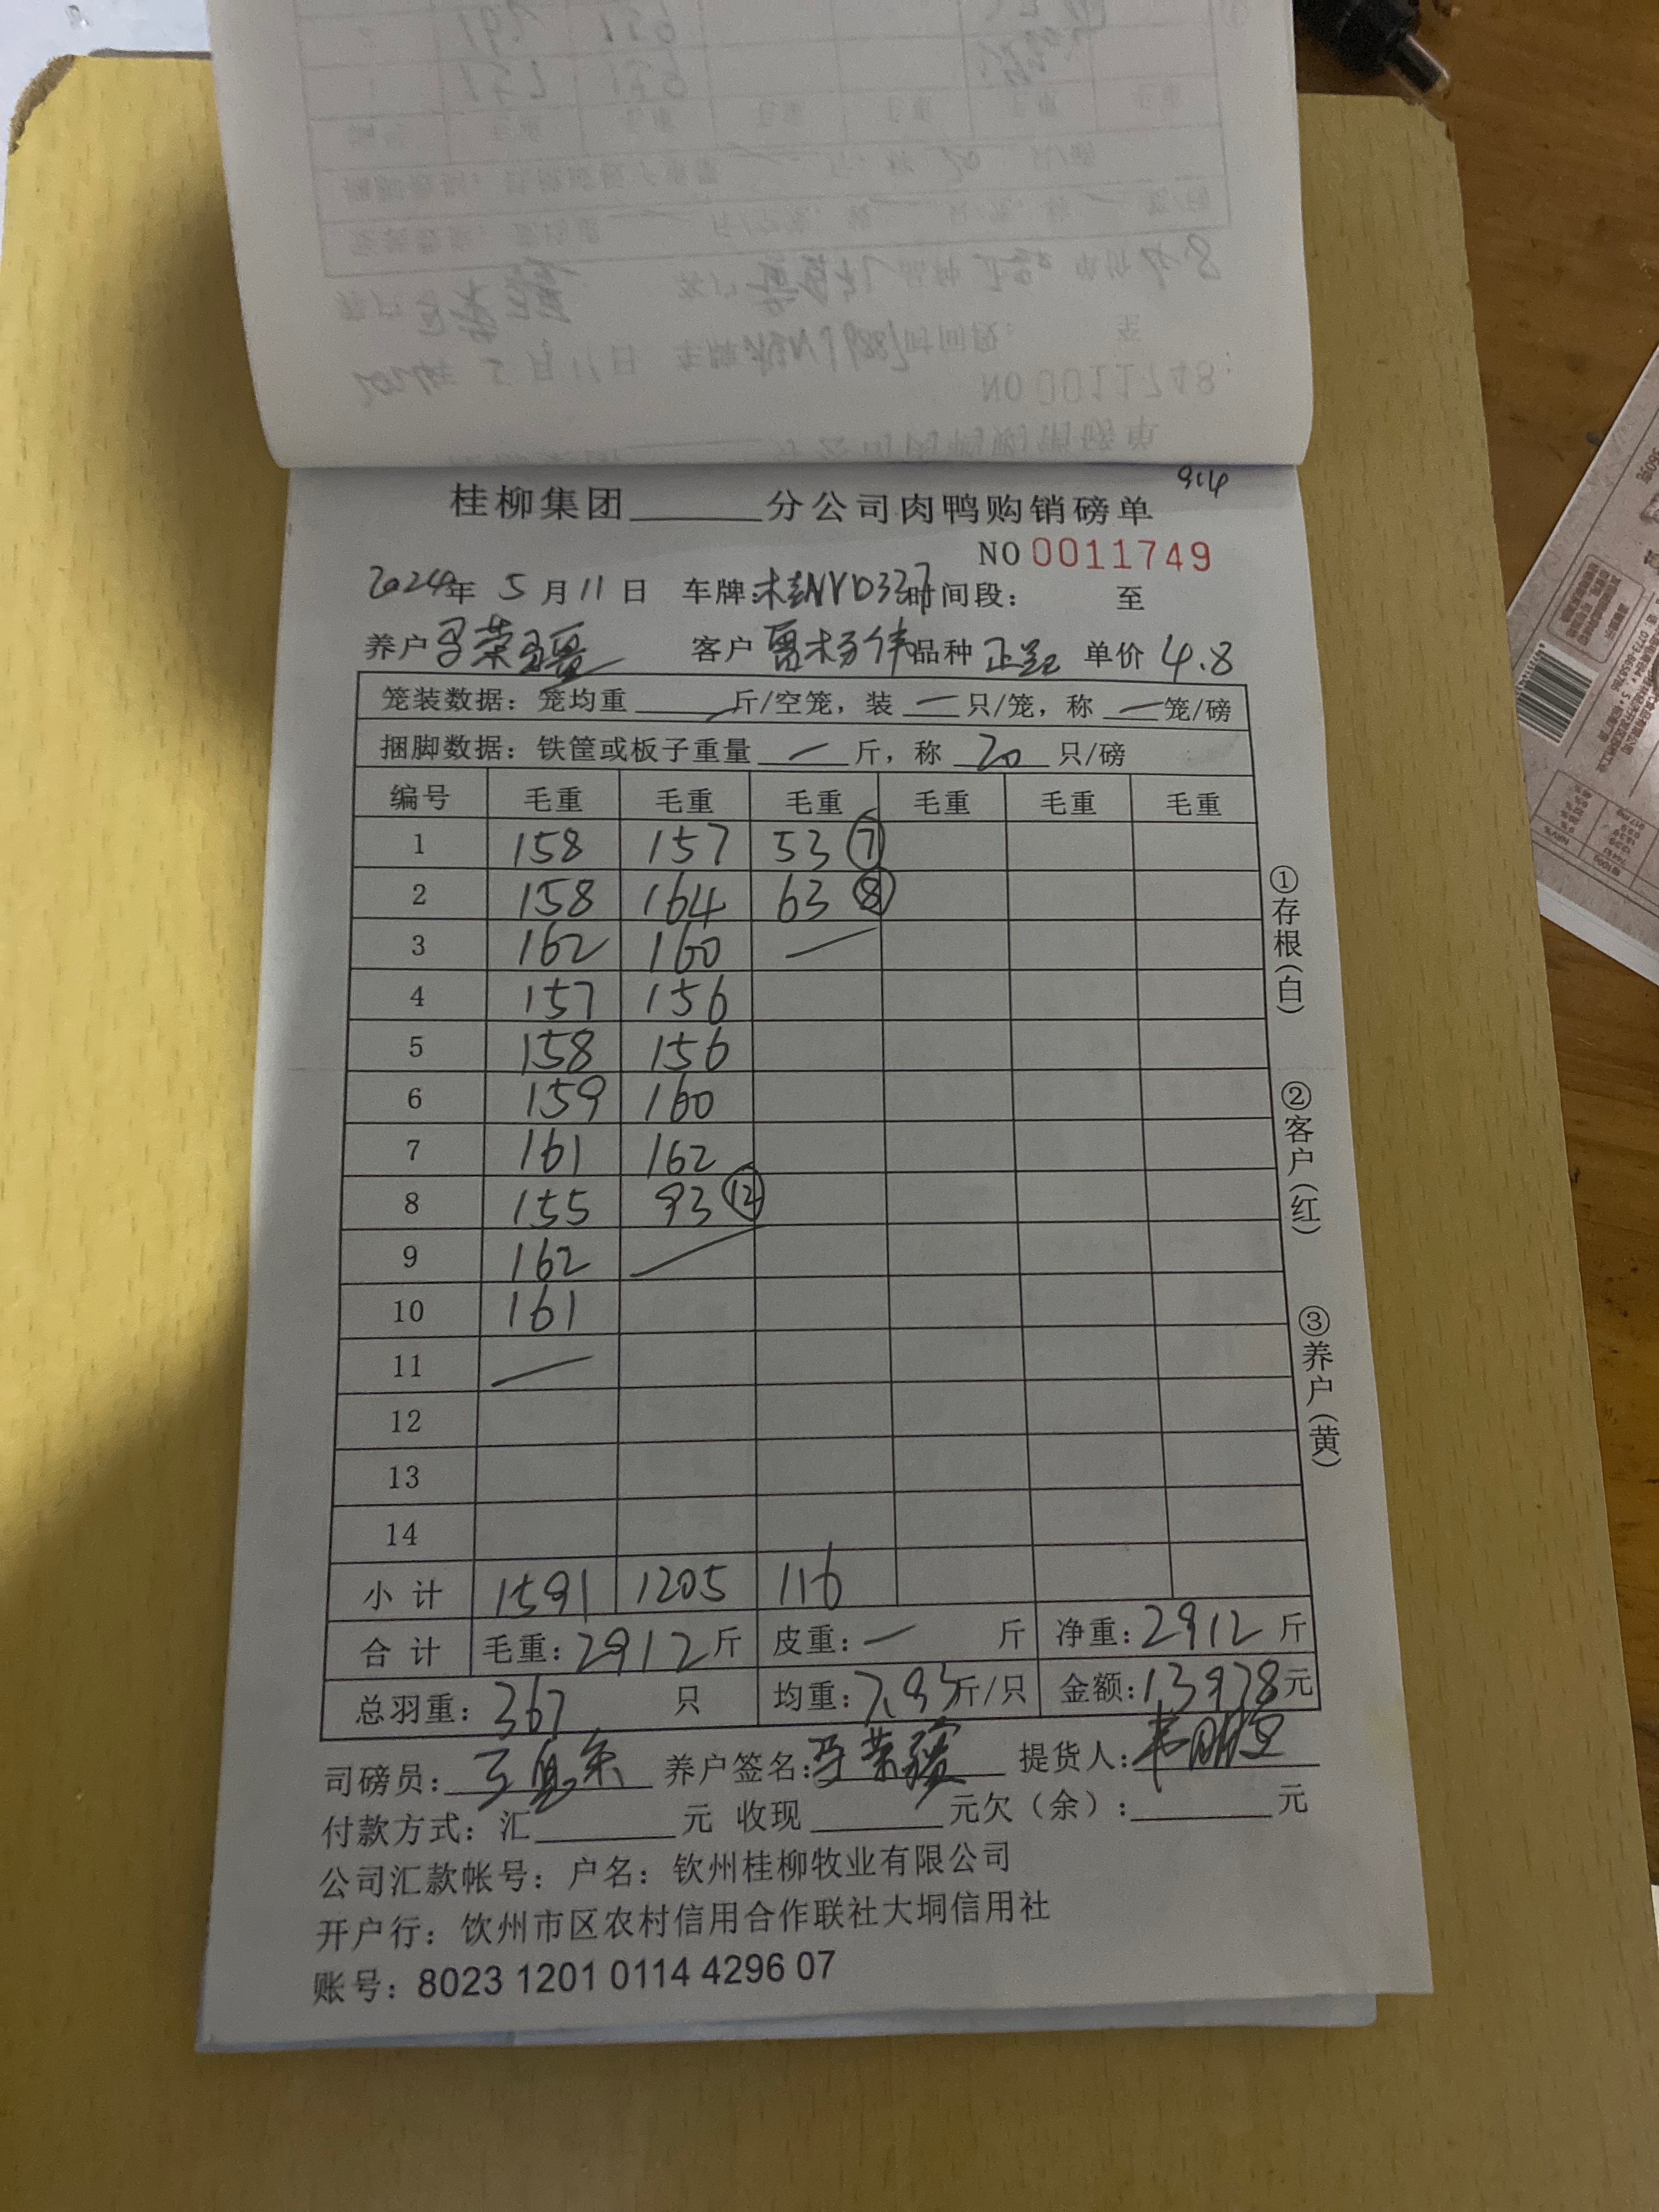 9:14
桂柳集团______分公司肉鸭购销磅单
NO 0011749
2024年 5月11日 车牌:桂NYD337时间段: 至
养户 荣 客户 曾杨伟 品种 正 单价 4.8
笼装数据:笼均重____斤/空笼,装一只/笼,称一笼/磅
捆脚数据:铁筐或板子重量一斤,称 20 只/磅
编号 毛重 毛重 毛重 毛重 毛重 毛重
1 158 157 53 ⑦
2 158 164 63 ⑧
3 162 160 —
4 157 156
5 158 156
6 159 160
7 161 162
8 155 93 ⑫
9 162 —
10 161
11 —
12
13
14
小计 1591 1205 116
合计 毛重:2912斤 皮重:一 斤 净重:2912斤
总羽重:367 只 均重:7.93斤/只 金额:13978元
司磅员: 养户签名: 荣 提货人:
付款方式:汇______元 收现______元欠(余):______元
公司汇款帐号:户名:钦州桂柳牧业有限公司
开户行:钦州市区农村信用合作联社大垌信用社
账号:8023 1201 0114 4296 07
①存根(白)
②客户(红)
③养户(黄)
NO 0011748